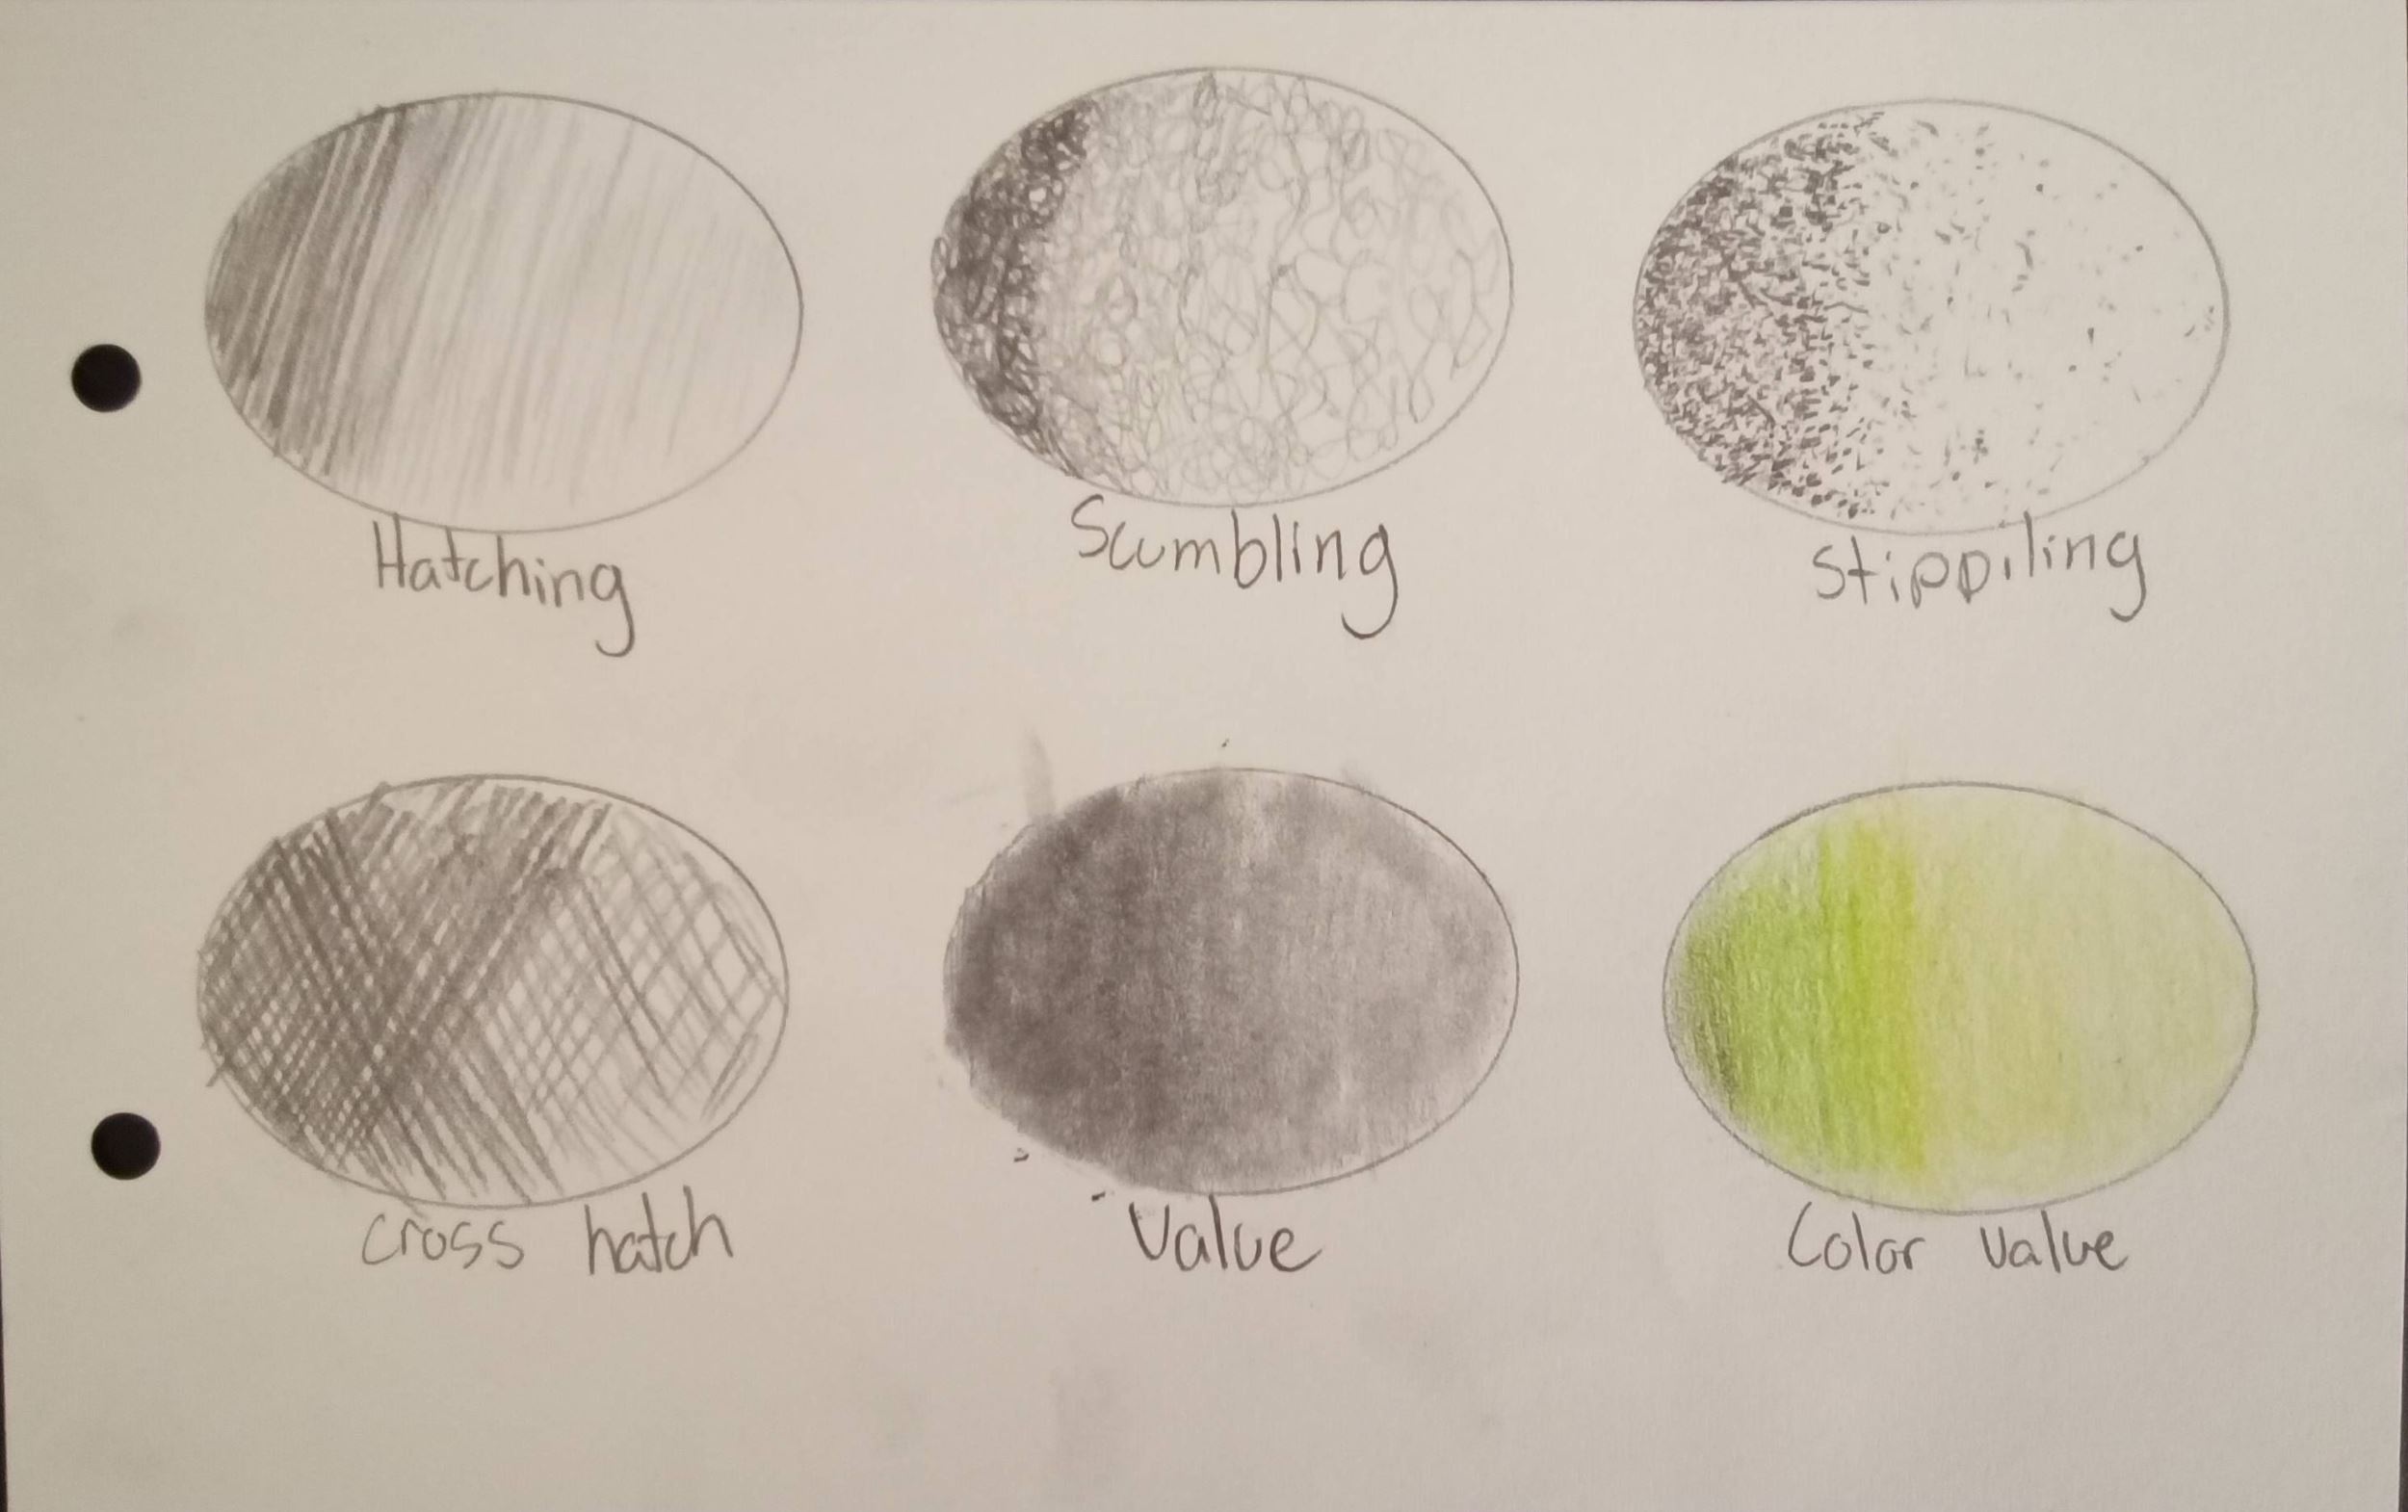 Hatching
Scumbling
Stippiling
cross hatch
Value
Color Value